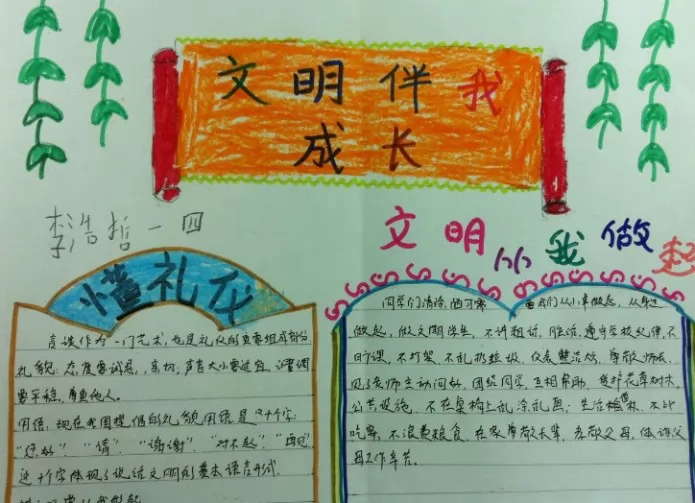 文明伴我
成长
李浩哲一四
懂礼仪
言谈作为一门艺术,也是礼仪的重要组成部分
礼貌:态度要诚恳,亲切;声音大小要适宜,语调
要平稳,尊重他人。
用语:现在我国提倡的礼貌用语是十个字:
“您好”“请”“谢谢”“对不起”“再见”
这十个字体现了说话文明的基本语言形式。
文明从我做起
同学们请你 我们从小事做起,从身边
做起,做文明学生,不讲粗话,脏话,遵守学校纪律,不
旷课,不打架,不乱扔垃圾,仪表整洁,尊敬师长,
见了老师主动问好,团结同学,互相帮助,爱护花草树木,
公共设施,不在桌椅上乱涂乱画;生活俭朴,不比
吃穿,不浪费粮食,在家尊敬长辈,孝敬父母,体谅父
母工作辛苦。